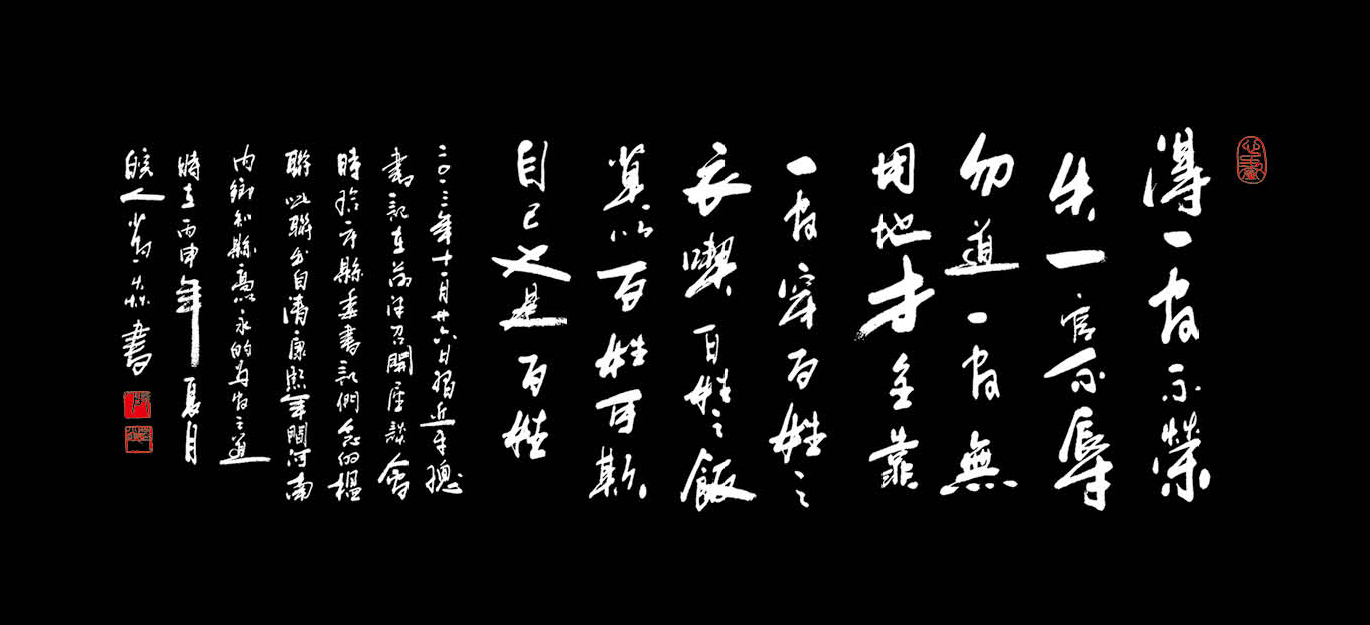 得一官不榮
失一官不辱
勿道一官無
用地方全靠
一官穿百姓之
衣喫百姓之飯
莫以百姓可欺
自己也是百姓
二〇一三年十一月廿六日習近平總
書記在菏澤召開座談會
時給市縣委書記們念的楹
聯此聯出自清康熙年間河南
內鄉知縣高以永的為官之道
時在丙申年夏月
皖人書